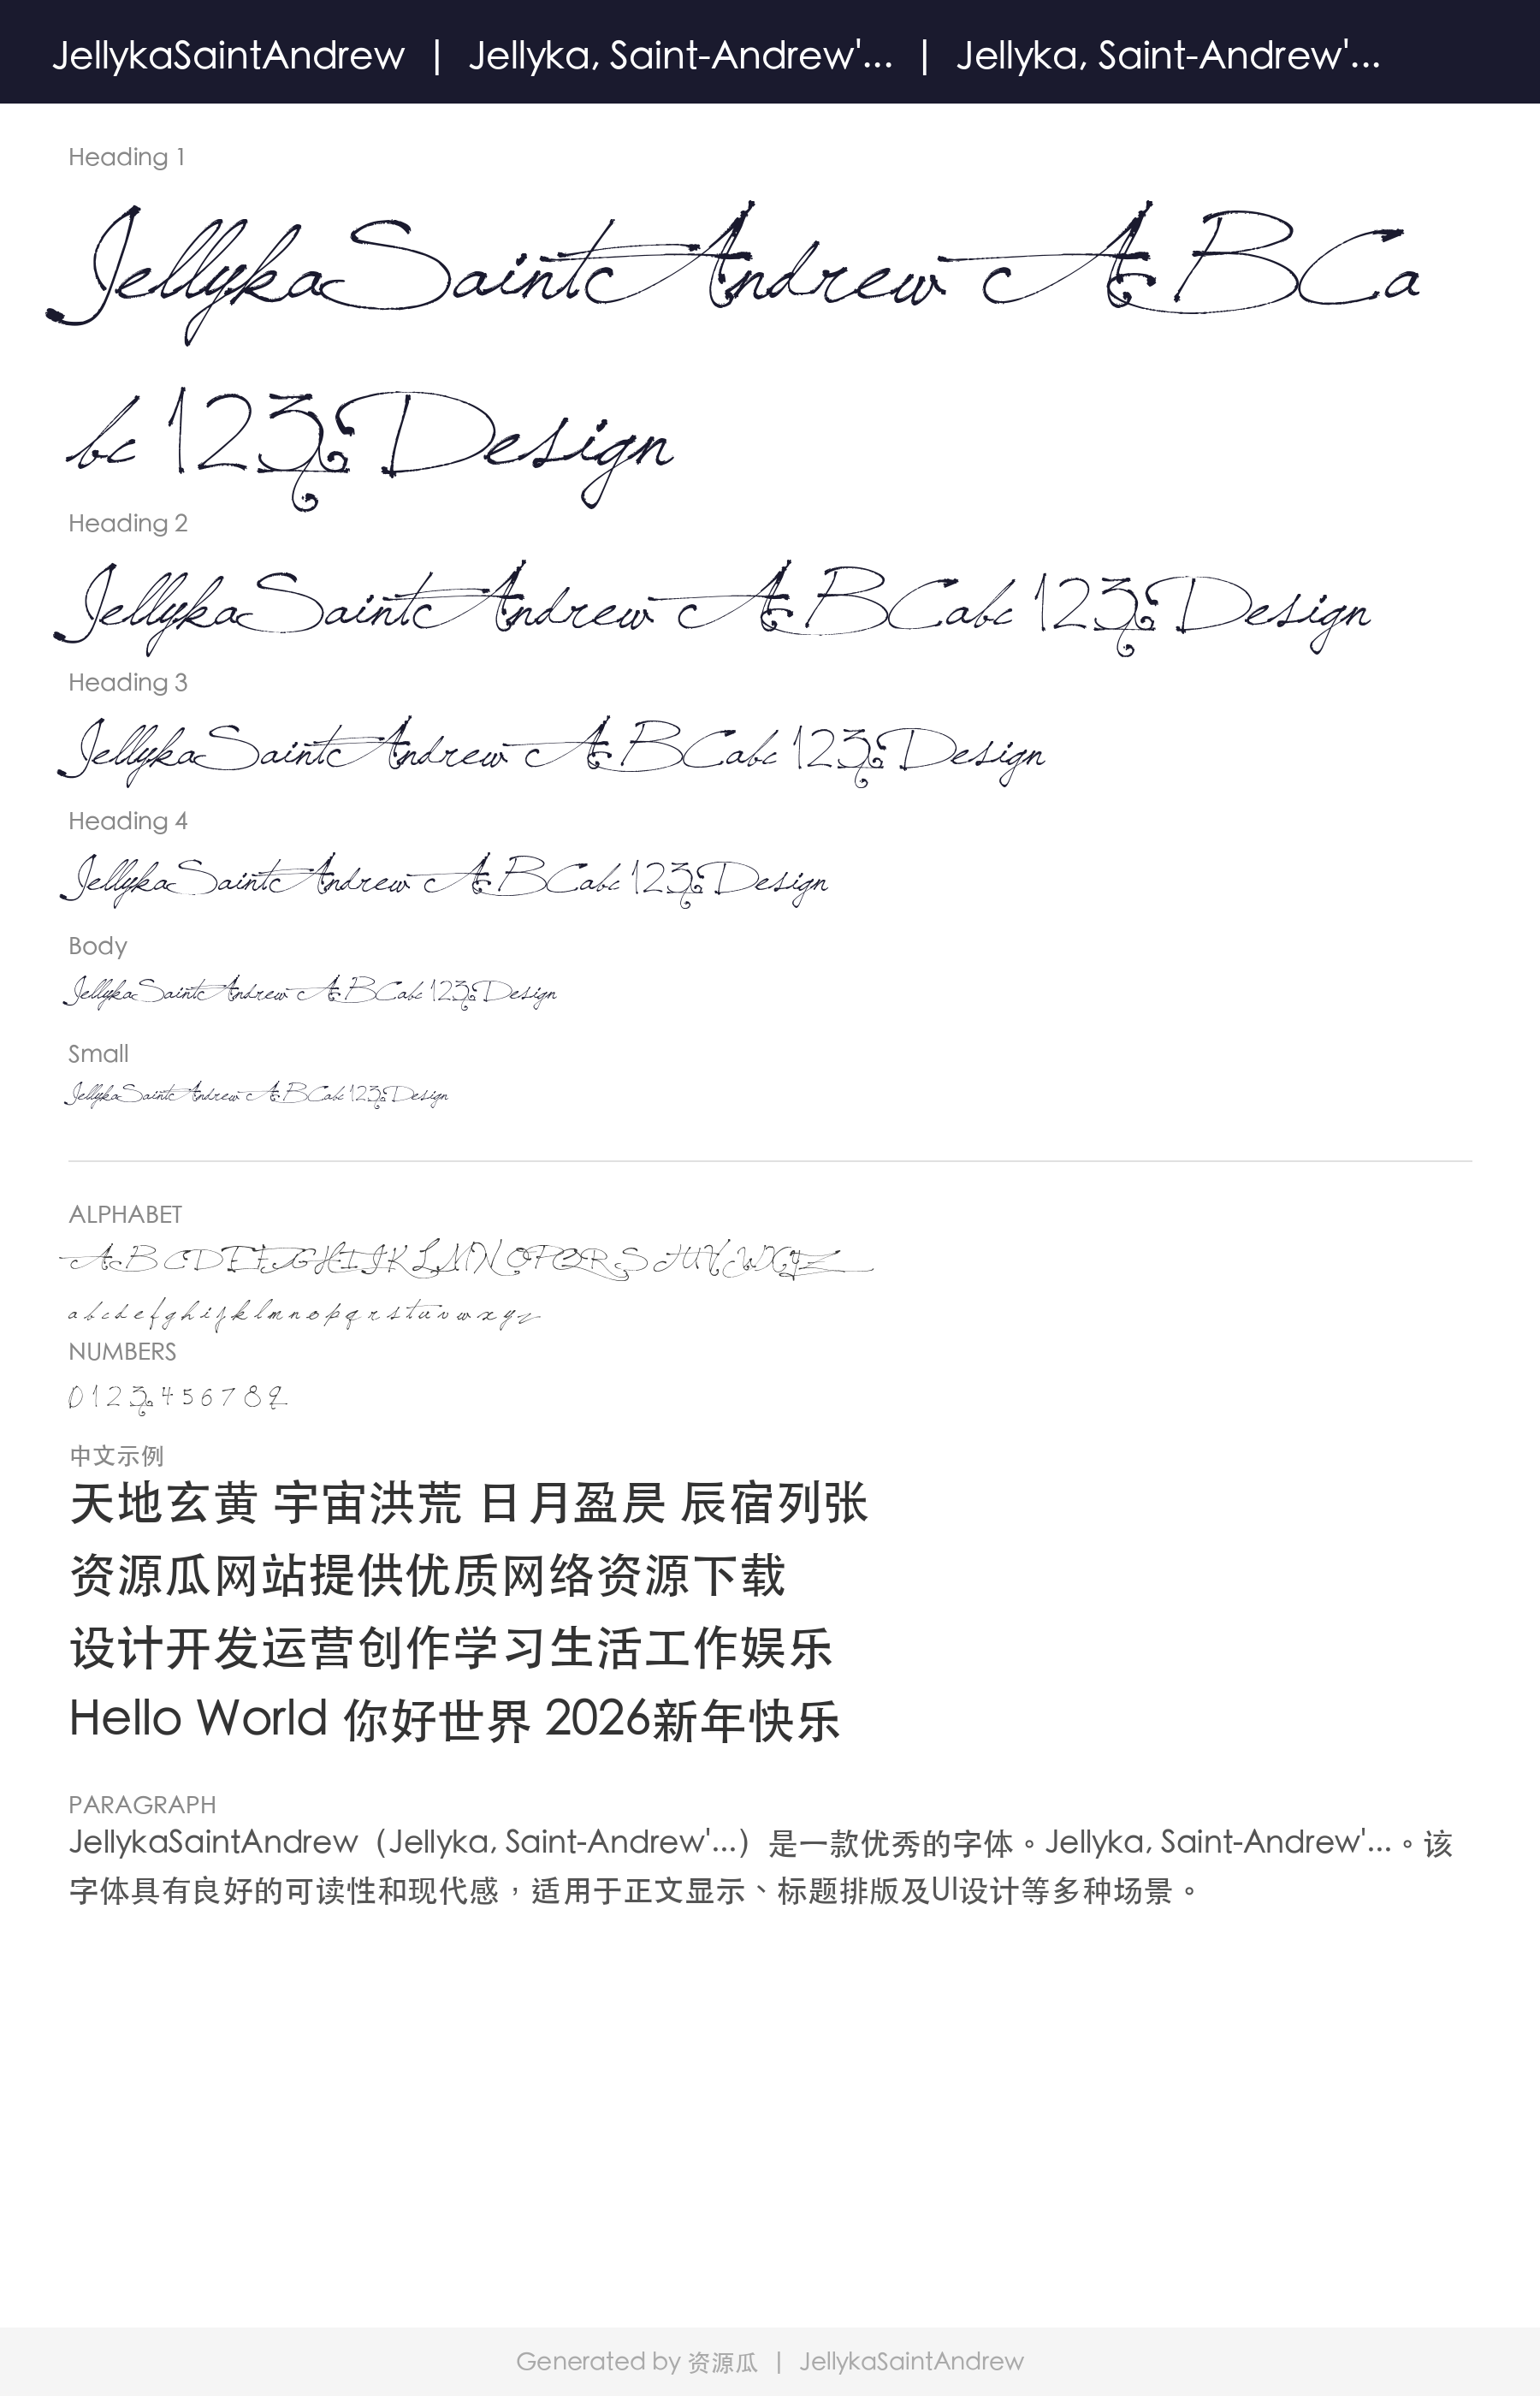 JellykaSaintAndrew | Jellyka, Saint-Andrew'... | Jellyka, Saint-Andrew'...
Heading 1
JellykaSaintAndrew ABCa
bc 123 Design
Heading 2
JellykaSaintAndrew ABCabc 123 Design
Heading 3
JellykaSaintAndrew ABCabc 123 Design
Heading 4
JellykaSaintAndrew ABCabc 123 Design
Body
JellykaSaintAndrew ABCabc 123 Design
Small
JellykaSaintAndrew ABCabc 123 Design
ALPHABET
A B C D E F G H I J K L M N O P Q R S T U V W X Y Z
a b c d e f g h i j k l m n o p q r s t u v w x y z
NUMBERS
0 1 2 3 4 5 6 7 8 9
中文示例
天地玄黄 宇宙洪荒 日月盈昃 辰宿列张
资源瓜网站提供优质网络资源下载
设计开发运营创作学习生活工作娱乐
Hello World 你好世界 2026新年快乐
PARAGRAPH
JellykaSaintAndrew（Jellyka, Saint-Andrew'...）是一款优秀的字体。Jellyka, Saint-Andrew'...。该
字体具有良好的可读性和现代感，适用于正文显示、标题排版及UI设计等多种场景。
Generated by 资源瓜 | JellykaSaintAndrew